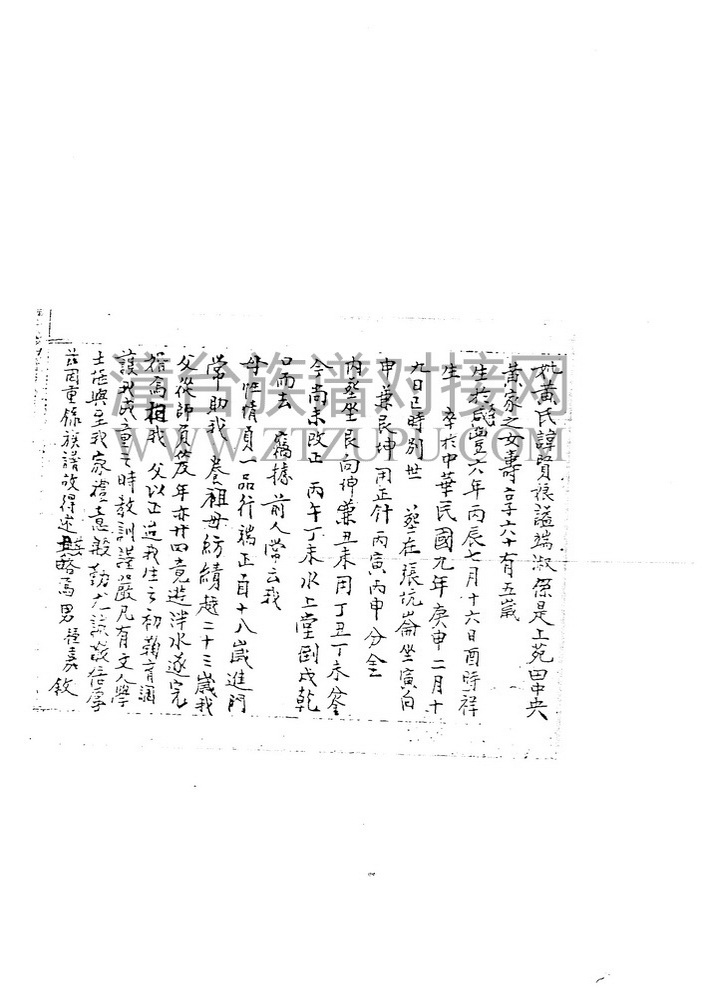 妣黃氏諱賢娘謚端淑係是上苑田中央
黃家之女壽享六十有五歲
生於咸豐六年丙辰七月十六日酉時祥
生 卒於中華民國九年庚申二月十
九日已時別世 塟在張坑崙坐寅向
申兼艮坤用正針丙寅丙申分金
內塟坐艮向坤兼丑未用丁丑丁未分金
今尚未改正 丙午丁未水上堂倒戌乾
口而去 竊據前人常云我
母性情貞一品行端正自十八歲進門
常助我 祖母紡績越二十三歲我
父從師負笈年亦廿四竟遊泮水遂完
我 父以正造我生之初鞠育調
護我成童之時教訓謹嚴凡有文人學
士往與至我家禮意殷勤
茲因重修族譜故得述其畧焉男 嘉敘
滻台族谱对接网
WWW.ZTZUPU.COM